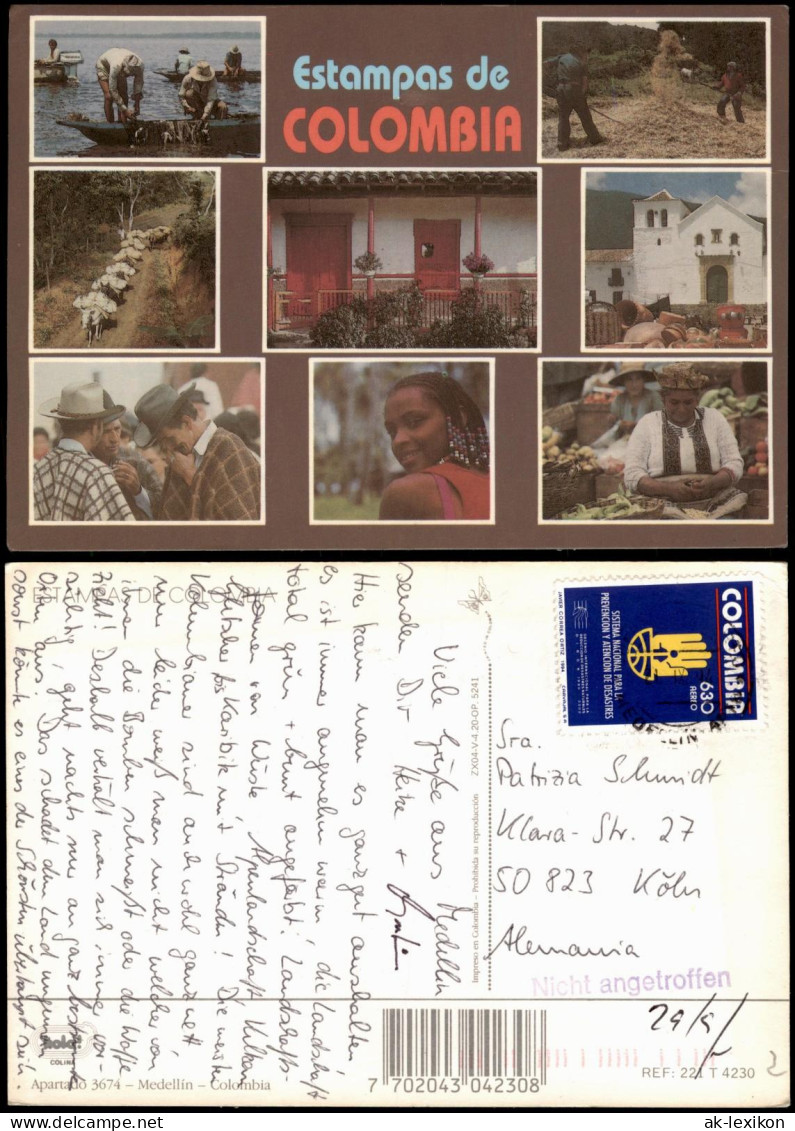 Estampas de
COLOMBIA
ESTAMPAS DE COLOMBIA
Viele Grüße aus Medellín
senden Dir Heike +
Hier kann man es ganz gut aushalten,
es ist immer angenehm warm, die Landschaft
total grün + bunt angefärbt. Landschafts-
formen von Wüste, Alpenlandschaft, Vulkan
bis Karibik mit Stränden! Die meisten
Kolumbianer sind auch wohl ganz nett
nur leider weiß man nicht welcher von
ihnen die Bomben schmeißt oder die Waffe
zieht! Deshalb verhält man sich immer vor-
sichtig, geht nachts nur an ganz bestimmte
Orte aus. Das schadet dem Land ungemein
sonst könnte es eines der Schönsten überhaupt sein.
Impreso en Colombia – Prohibida su reproducción ZX04-V-4.20-OP. 5241
COLOMBIA
630
AEREO
SISTEMA NACIONAL PARA LA
PREVENCION Y ATENCION DE DESASTRES
JAVIER CORREA ORTIZ. 1994
MEDELLIN
Sra.
Patrizia Schmidt
Klara-Str. 27
50 823 Köln
Alemania
Nicht angetroffen
29/9/
2
hola!
COLINA
Apartado 3674 – Medellín – Colombia
7 702043 042308
REF: 221 T 4230
ak-lexikon.com